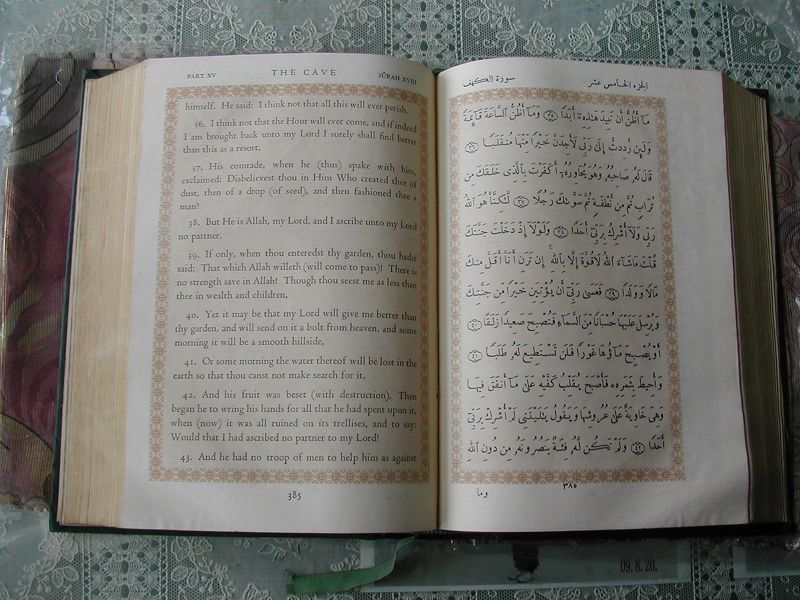 PART XV THE CAVE SÛRAH XVIII
himself. He said: I think not that all this will ever perish.
36. I think not that the Hour will ever come, and if indeed
I am brought back unto my Lord I surely shall find better
than this as a resort.
37. His comrade, when he (thus) spake with him,
exclaimed: Disbelievest thou in Him Who created thee of
dust, then of a drop (of seed), and then fashioned thee a
man?
38. But He is Allah, my Lord, and I ascribe unto my Lord
no partner.
39. If only, when thou enteredst thy garden, thou hadst
said: That which Allah willeth (will come to pass)! There is
no strength save in Allah! Though thou seest me as less than
thee in wealth and children,
40. Yet it may be that my Lord will give me better than
thy garden, and will send on it a bolt from heaven, and some
morning it will be a smooth hillside,
41. Or some morning the water thereof will be lost in the
earth so that thou canst not make search for it,
42. And his fruit was beset (with destruction), Then
began he to wring his hands for all that he had spent upon it,
when (now) it was all ruined on its trellises, and to say:
Would that I had ascribed no partner to my Lord!
43. And he had no troop of men to help him as against
385
سورة الكهف الجزء الخامس عشر
مَآ أَظُنُّ أَن تَبِيدَ هَٰذِهِۦٓ أَبَدًا ﴿٣٥﴾ وَمَآ أَظُنُّ ٱلسَّاعَةَ قَآئِمَةً
وَلَئِن رُّدِدتُّ إِلَىٰ رَبِّى لَأَجِدَنَّ خَيْرًا مِّنْهَا مُنقَلَبًا ﴿٣٦﴾
قَالَ لَهُۥ صَاحِبُهُۥ وَهُوَ يُحَاوِرُهُۥٓ أَكَفَرْتَ بِٱلَّذِى خَلَقَكَ مِن
تُرَابٍ ثُمَّ مِن نُّطْفَةٍ ثُمَّ سَوَّىٰكَ رَجُلًا ﴿٣٧﴾ لَّٰكِنَّا۠ هُوَ ٱللَّهُ
رَبِّى وَلَآ أُشْرِكُ بِرَبِّىٓ أَحَدًا ﴿٣٨﴾ وَلَوْلَآ إِذْ دَخَلْتَ جَنَّتَكَ
قُلْتَ مَا شَآءَ ٱللَّهُ لَا قُوَّةَ إِلَّا بِٱللَّهِ ۚ إِن تَرَنِ أَنَا۠ أَقَلَّ مِنكَ
مَالًا وَوَلَدًا ﴿٣٩﴾ فَعَسَىٰ رَبِّىٓ أَن يُؤْتِيَنِ خَيْرًا مِّن جَنَّتِكَ
وَيُرْسِلَ عَلَيْهَا حُسْبَانًا مِّنَ ٱلسَّمَآءِ فَتُصْبِحَ صَعِيدًا زَلَقًا ﴿٤٠﴾
أَوْ يُصْبِحَ مَآؤُهَا غَوْرًا فَلَن تَسْتَطِيعَ لَهُۥ طَلَبًا ﴿٤١﴾
وَأُحِيطَ بِثَمَرِهِۦ فَأَصْبَحَ يُقَلِّبُ كَفَّيْهِ عَلَىٰ مَآ أَنفَقَ فِيهَا
وَهِىَ خَاوِيَةٌ عَلَىٰ عُرُوشِهَا وَيَقُولُ يَٰلَيْتَنِى لَمْ أُشْرِكْ بِرَبِّىٓ
أَحَدًا ﴿٤٢﴾ وَلَمْ تَكُن لَّهُۥ فِئَةٌ يَنصُرُونَهُۥ مِن دُونِ ٱللَّهِ
٣٨٥ وما
09. 8. 20.